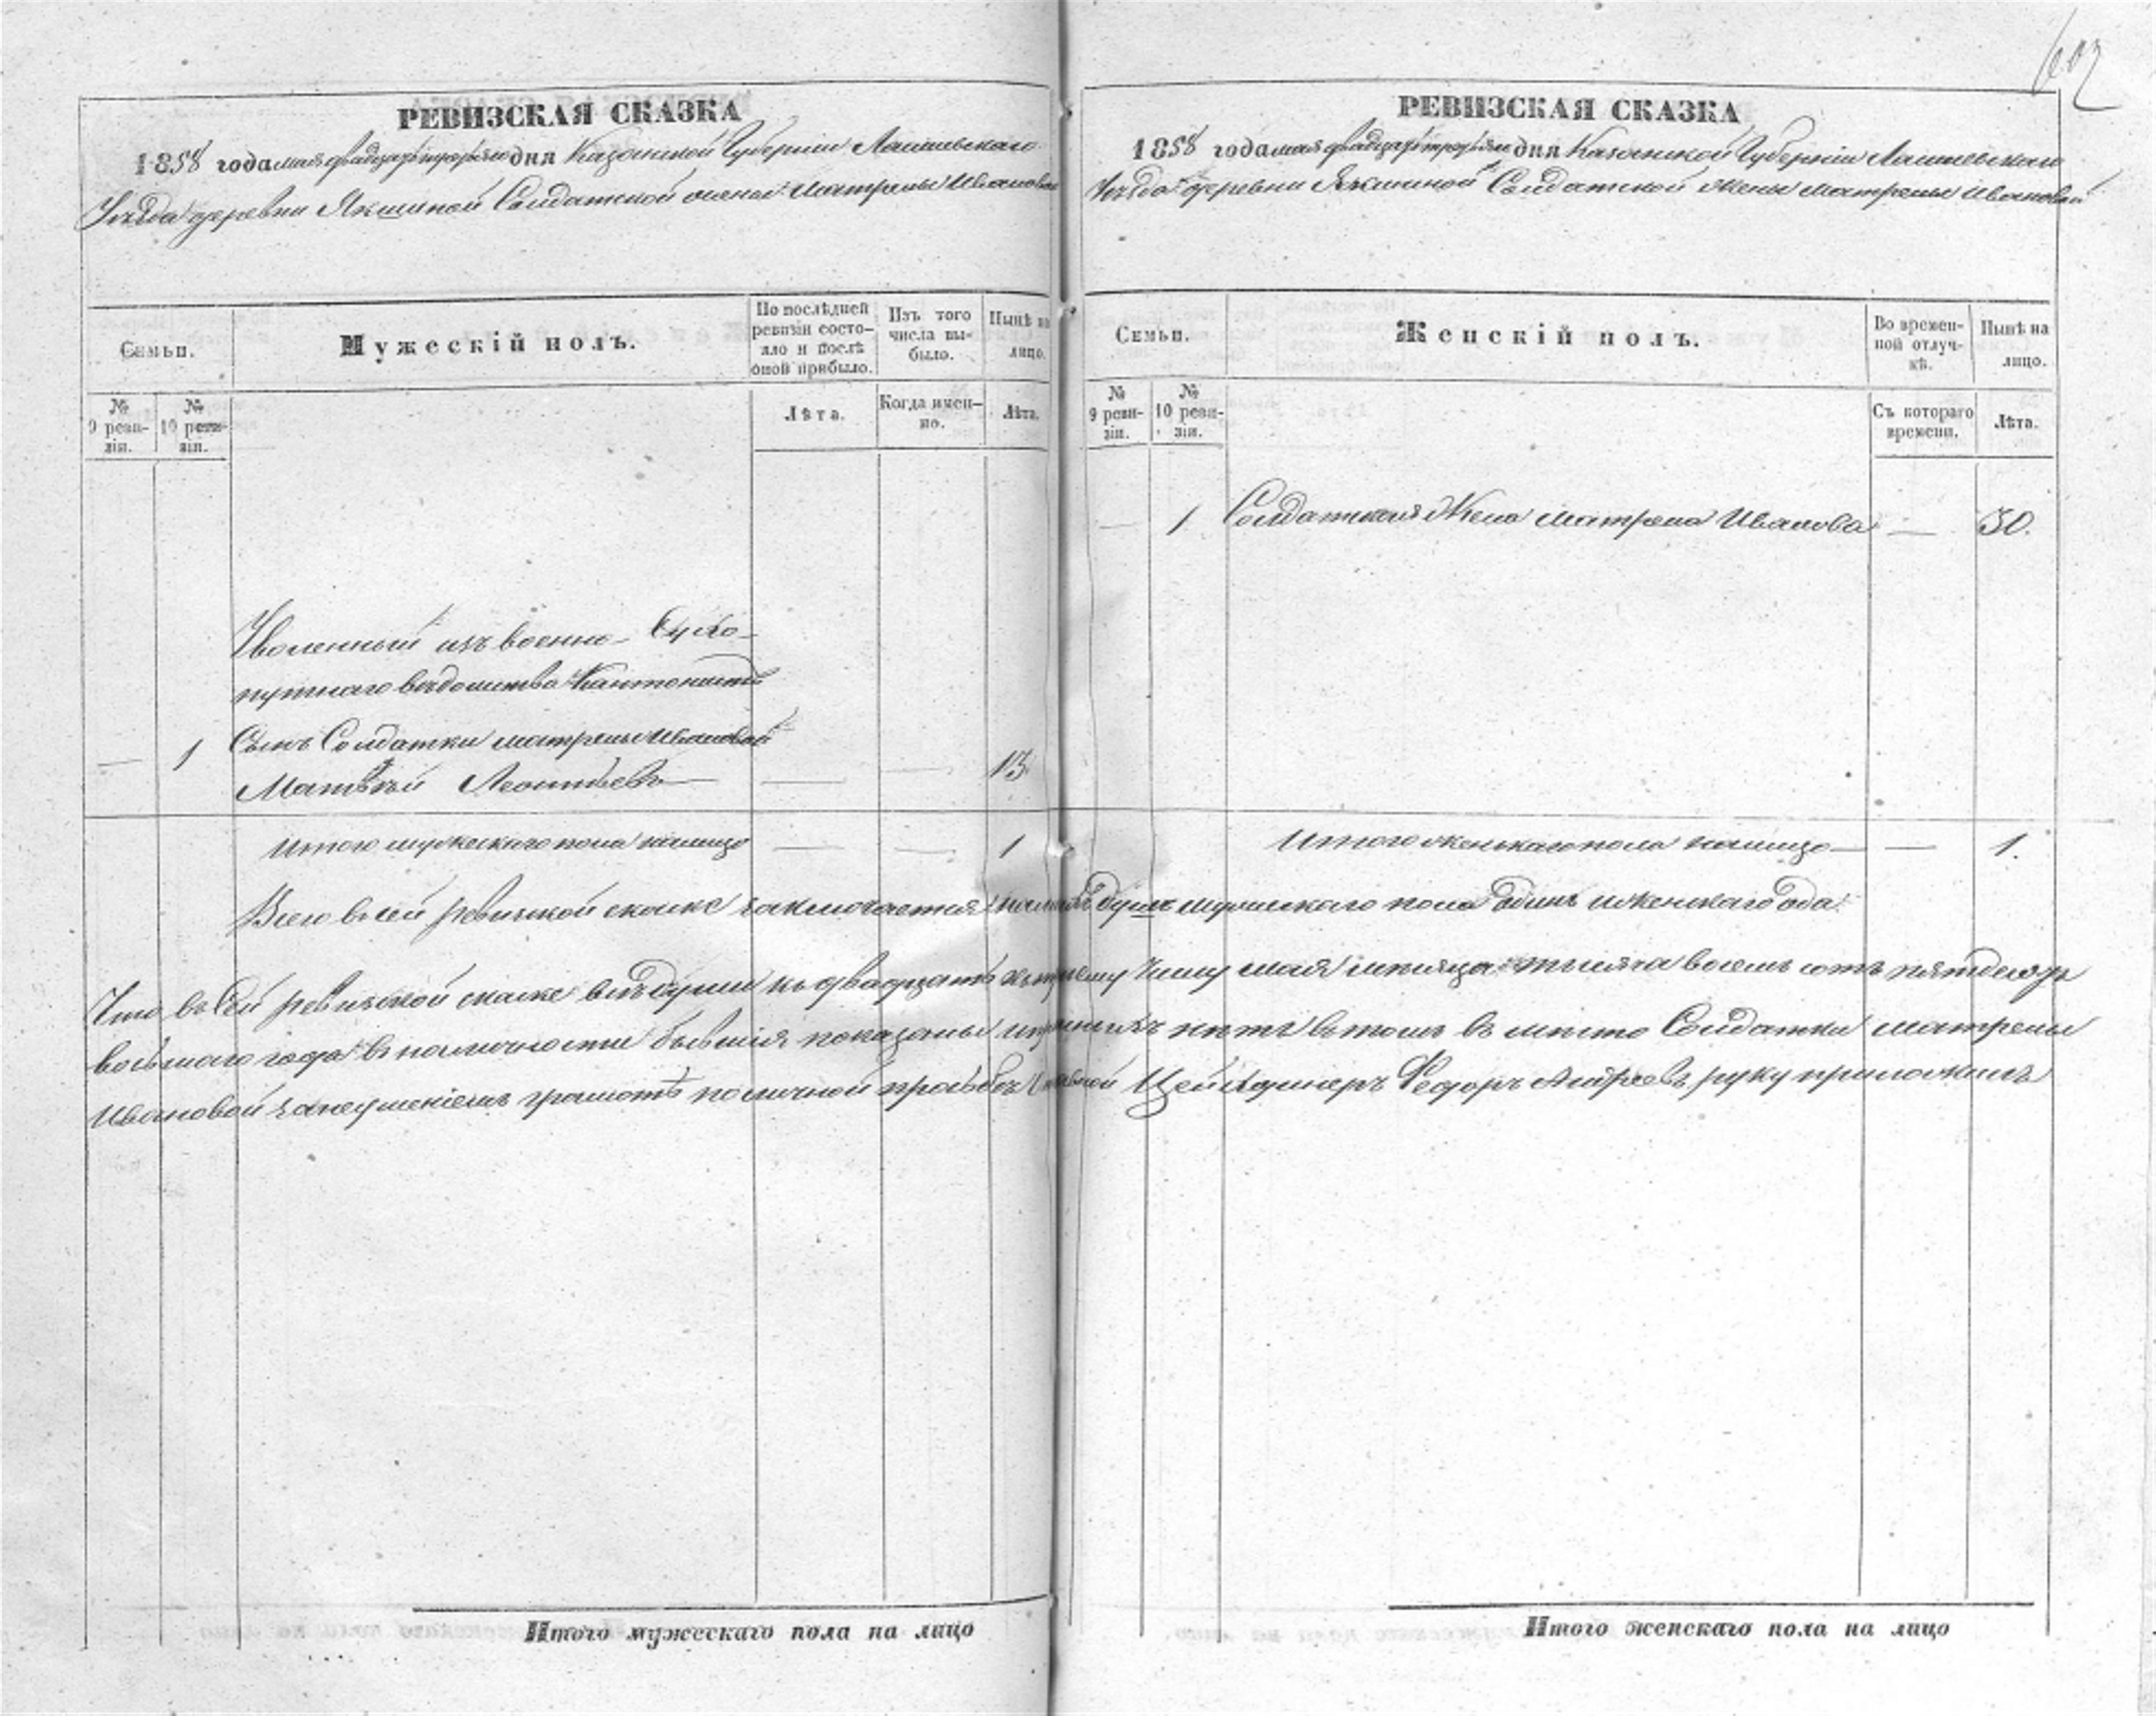 602
РЕВИЗСКАЯ СКАЗКА
1858 года мая двадцать третьяго дня Казанской Губерніи Лаишевскаго
Уѣзда деревни Якшиной Солдатской жены Матрены Ивановой
Семьи.
Мужескій полъ.
По послѣдней ревизіи состо-
яло и послѣ оной прибыло.
Изъ того числа вы-
было.
Нынѣ на лицо.
№ 9 реви-
зіи.
№ 10 реви-
зіи.
Лѣта.
Когда имен-
но.
Лѣта.
Уволенный изъ военно- Сухо-
путнаго вѣдомства Кантонистъ
Сынъ Солдатки Матрены Ивановой
— 1 Матвѣй Леонтьевъ — — — 13.
Итого мужескаго пола налицо — — 1
РЕВИЗСКАЯ СКАЗКА
1858 года мая двадцать третьяго дня Казанской Губерніи Лаишевскаго
Уѣзда деревни Якшиной Солдатской жены Матрены Ивановой
Семьи.
Женскій полъ.
Во времен-
ной отлуч-
кѣ.
Нынѣ на лицо.
№ 9 реви-
зіи.
№ 10 реви-
зіи.
Съ котораго времени.
Лѣта.
— 1 Солдатская Жена Матрена Иванова — 30.
Итого женскаго пола налицо — — 1.
Всего въ сей ревизской скаске заключается душъ мужескаго пола одинъ и женскаго одна.
Что въ сей ревизской скаске всѣ души къ двадцать третьему числу мая мѣсяца тысяча восемь сотъ пятдесятъ
восьмаго года въ наличности бывшія показаны и нѣтъ въ томъ вмѣсто Солдатки Матрены
Ивановой за неумѣніемъ грамотѣ по личной прозьбѣ Цейхдинеръ Федоръ Андреевъ руку приложилъ
Итого мужескаго пола на лицо
Итого женскаго пола на лицо